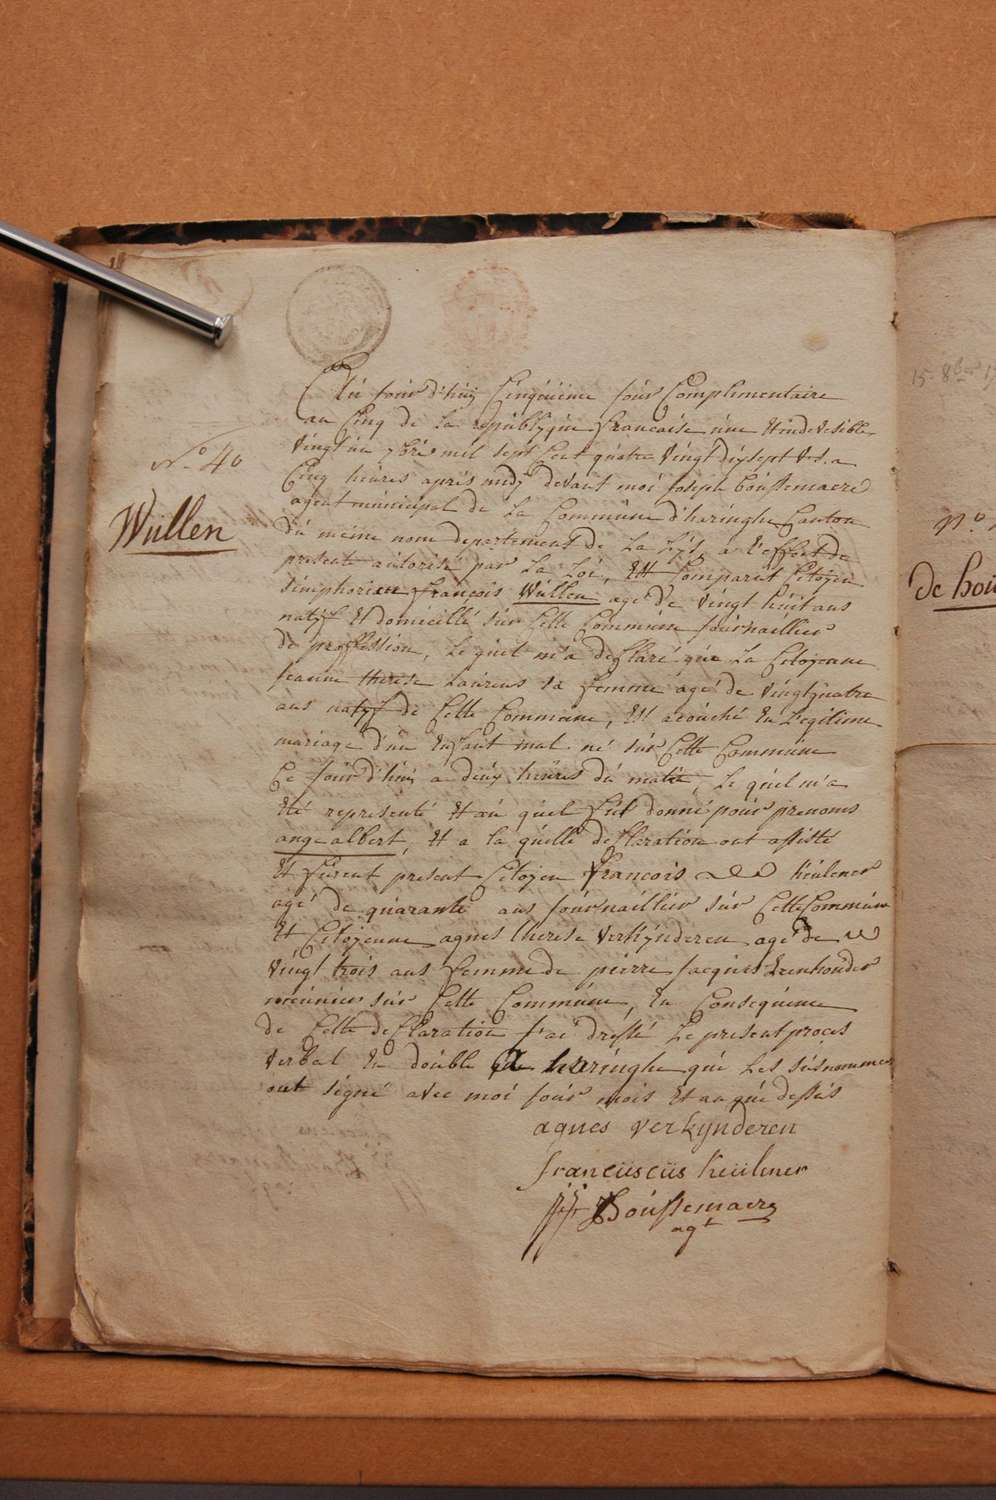 N.o 40
Wüllen
Cejourd'huy Cinquième jour Complimentaire
an Cinq de la républyque francaise une et indevisible
vingt un 7bre mil sept Cent quatre vingt dix sept v.s. a
Cinq heures après midy devant moi Joseph Boussemaere
agent municipal de la Commune d'haringhe Canton
du même nom departement de la Lys, a l'effect de
present autorisé par la Loi, est Comparüt Citoyen
Simphorien françois Wüllen agé de vingt huit ans
natif et domicillé sur Cette Commune journaillier
de proffession, le quel m'a declaré que la Citoyenne
jeanne therese Laureus sa femme agé de vingt quatre
ans natyf de Cette Commune, est acouché en Legitime
mariage d'un enfant mal né sur Cette Commune
Ce jourd'hui a deux heures du matin, le quel m'a
été representé et au quel fut donné pour prenoms
ange albert, et a la quelle declaration ont assisté
et furent present Citoyen françois keulener
agé de quarante ans journaillier sur Cette Commune
et Citoyenne agnes therese verkynderen agé de
vingt trois ans femme de pierre jacques
sur Cette Commune, en Consequence
de Cette declaration j'ai dressé le present proces
verbal en double a haringhe que les susnommer
ont signé avec moi jour mois et an que dessus
agnes verkynderen
franciiscüs keülener
Boussemaere
agt
15 8bre
N.o
de hou